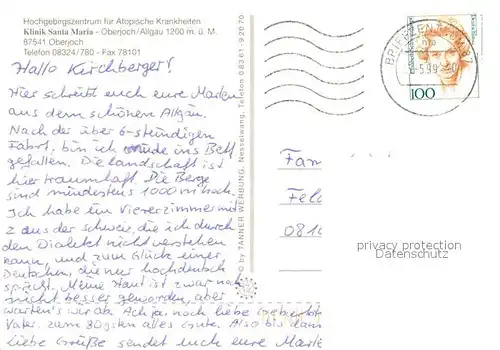 Hochgebirgszentrum für Atopische Krankheiten
Klinik Santa Maria - Oberjoch/Allgäu 1200 m. ü. M.
87541 Oberjoch
Telefon 08324/780 - Fax 78101
Hallo Kirchberger!
Hier schreibt euch eure Marlen
aus dem schönen Allgäu.
Nach der über 6-stündigen
Fahrt, bin ich müde ins Bett
gefallen. Die Landschaft ist
hier traumhaft. Die Berge
sind mindestens 1000 m hoch.
Ich habe ein Viererzimmer mit
2 aus der Schweiz, die ich durch
den Dialekt nicht verstehen
kann, und zum Glück einer
Deutschen, die nur hochdeutsch
spricht. Meine Haut ist zwar noch
nicht besser geworden, aber
warten's wir ab. Ach ja, noch liebe Geburtst
Vater. zum 30gsten alles Gute. Also bis dann
Liebe Grüße sendet euch eure Marle
© by TANNER WERBUNG, Nesselwang, Telefon 08361-92070
BRIEFZENTRUM 87
100
Fam
Feld
081
privacy protection
Datenschutz